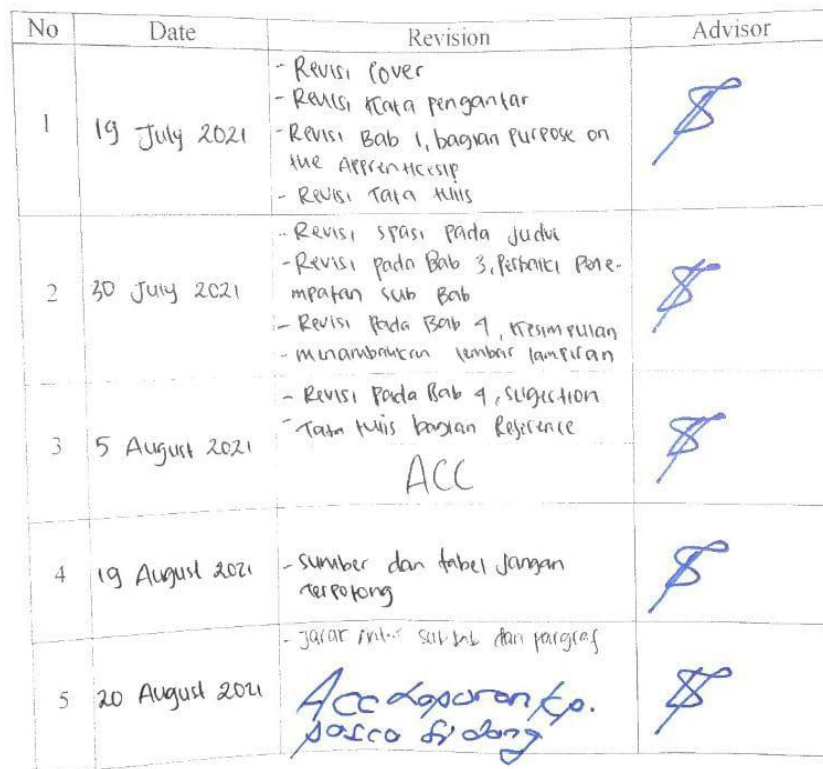 No Date Revision Advisor
1 19 July 2021
- Revisi Cover
- Revisi Kata pengantar
- Revisi Bab 1, bagian purpose on
the Apprenticesip
- Revisi Tata tulis
2 30 July 2021
- Revisi spasi pada judul
- Revisi pada Bab 3, Perbaiki Pene-
mpatan sub Bab
- Revisi Pada Bab 4, Kesimpulan
- menambahkan lembar lampiran
3 5 August 2021
- Revisi Pada Bab 4, sugestion
- Tata tulis bagian Reference
ACC
4 19 August 2021
- sumber dan tabel jangan
Terpotong
5 20 August 2021
- Jarak antar sub bab dan pargraf
Acc Laporan Kp.
pasca sidang